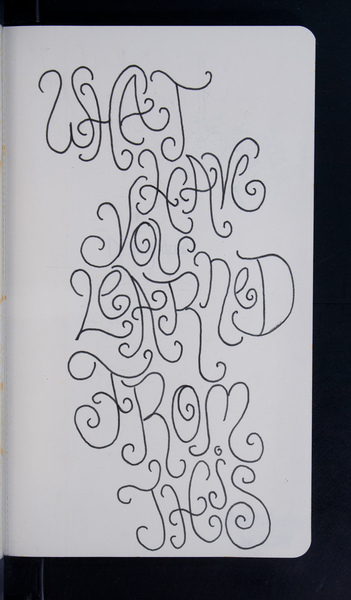 WHAT
HAVE
YOU
LEARNED
FROM
THiS